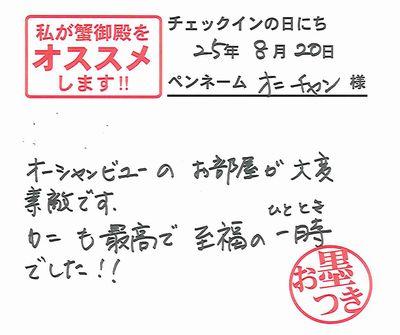 私が蟹御殿を
オススメ
します!!
チェックインの日にち
25年 8月 20日
ペンネーム オニチャン 様
オーシャンビューの お部屋が 大変
素敵です.
カニも最高で 至福の一時
ひととき
でした!!
お墨つき